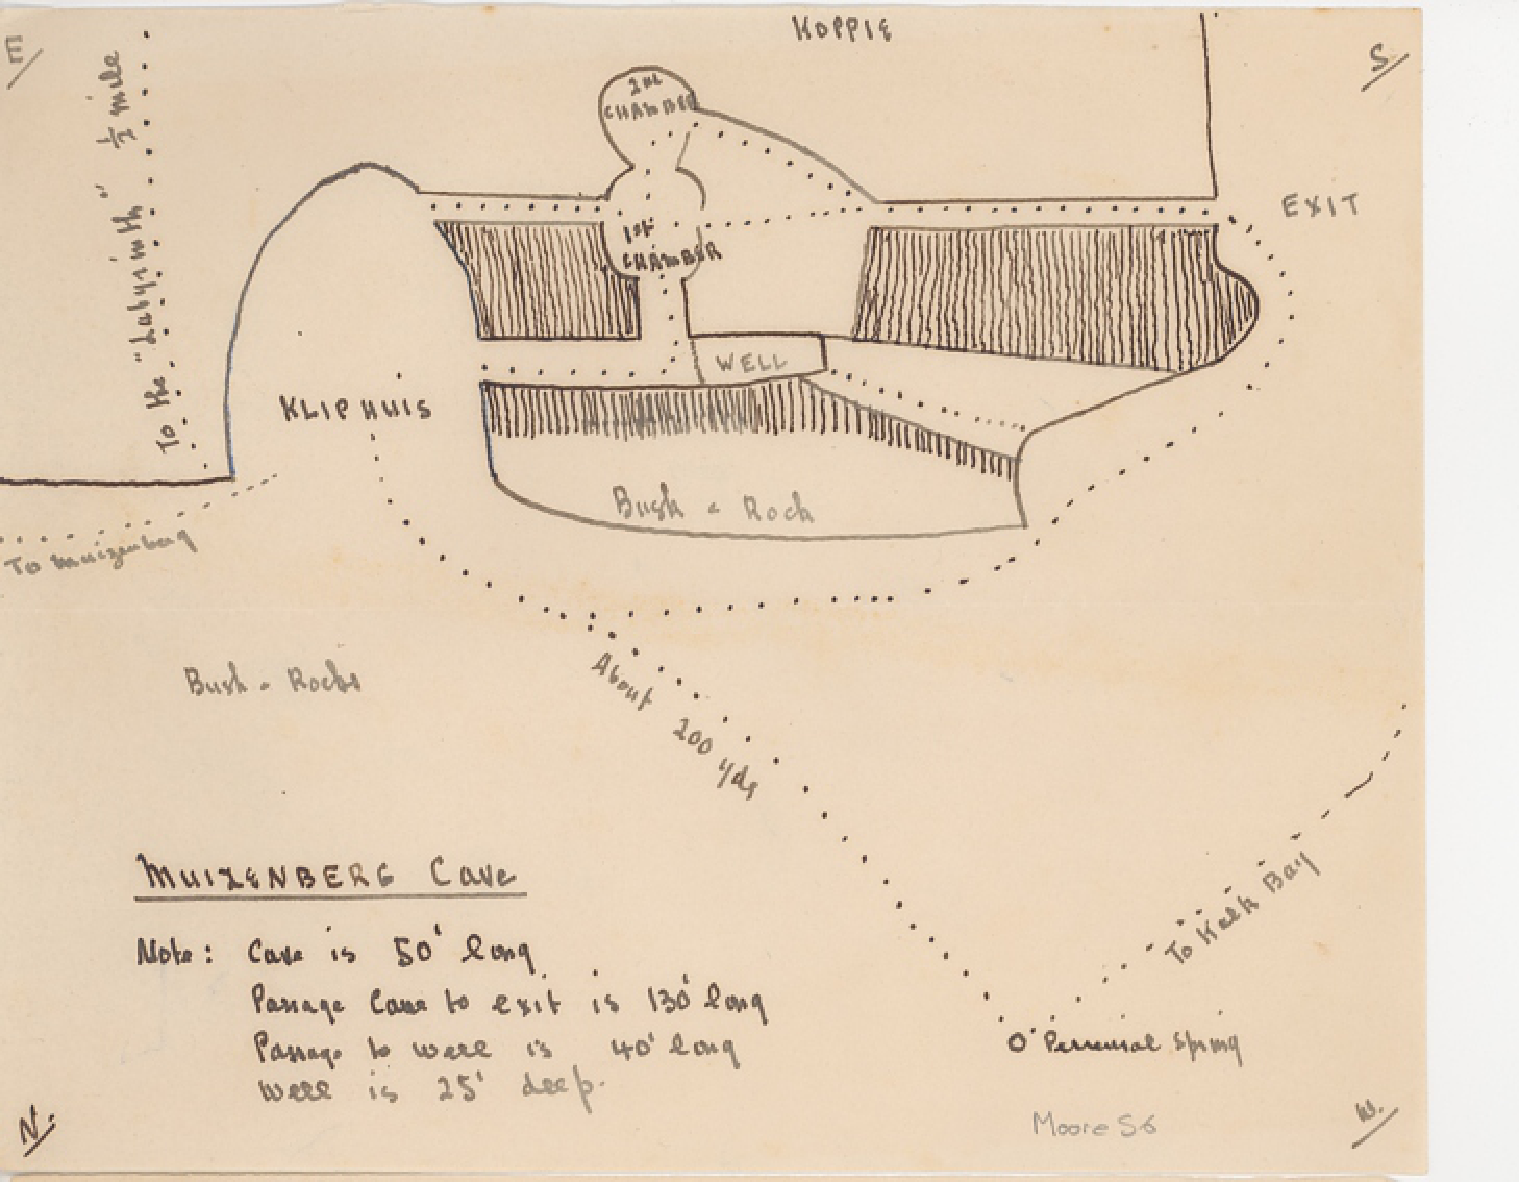 KOPPIE
E
S
2nd
CHAMBER
To the "Labyrinth" ½ mile
EXIT
1st
CHAMBER
WELL
KLIPHUIS
Bush & Rock
To Muizenberg
Bush & Rocks
About 200 yds
MUIZENBERG Cave
Note: Cave is 50' long
Passage Cave to exit is 130' long
Passage to well is 40' long
Well is 25' deep.
To Kalk Bay
O Perennial Spring
Moore 56
N.
W.